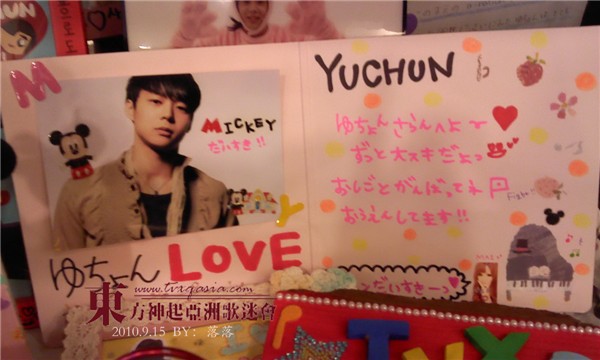 M
MICKEY
だいすき!!
Y
ゆちょん LOVE
YUCHUN
ゆちょん さらんへよ〜♥
ずっと大スキだよっ
おしごとがんばってネ
おうえんしてます!!
だいすきーっ
www.tvxqasia.com
東方神起亞洲歌迷會
2010.9.15 BY: 落落